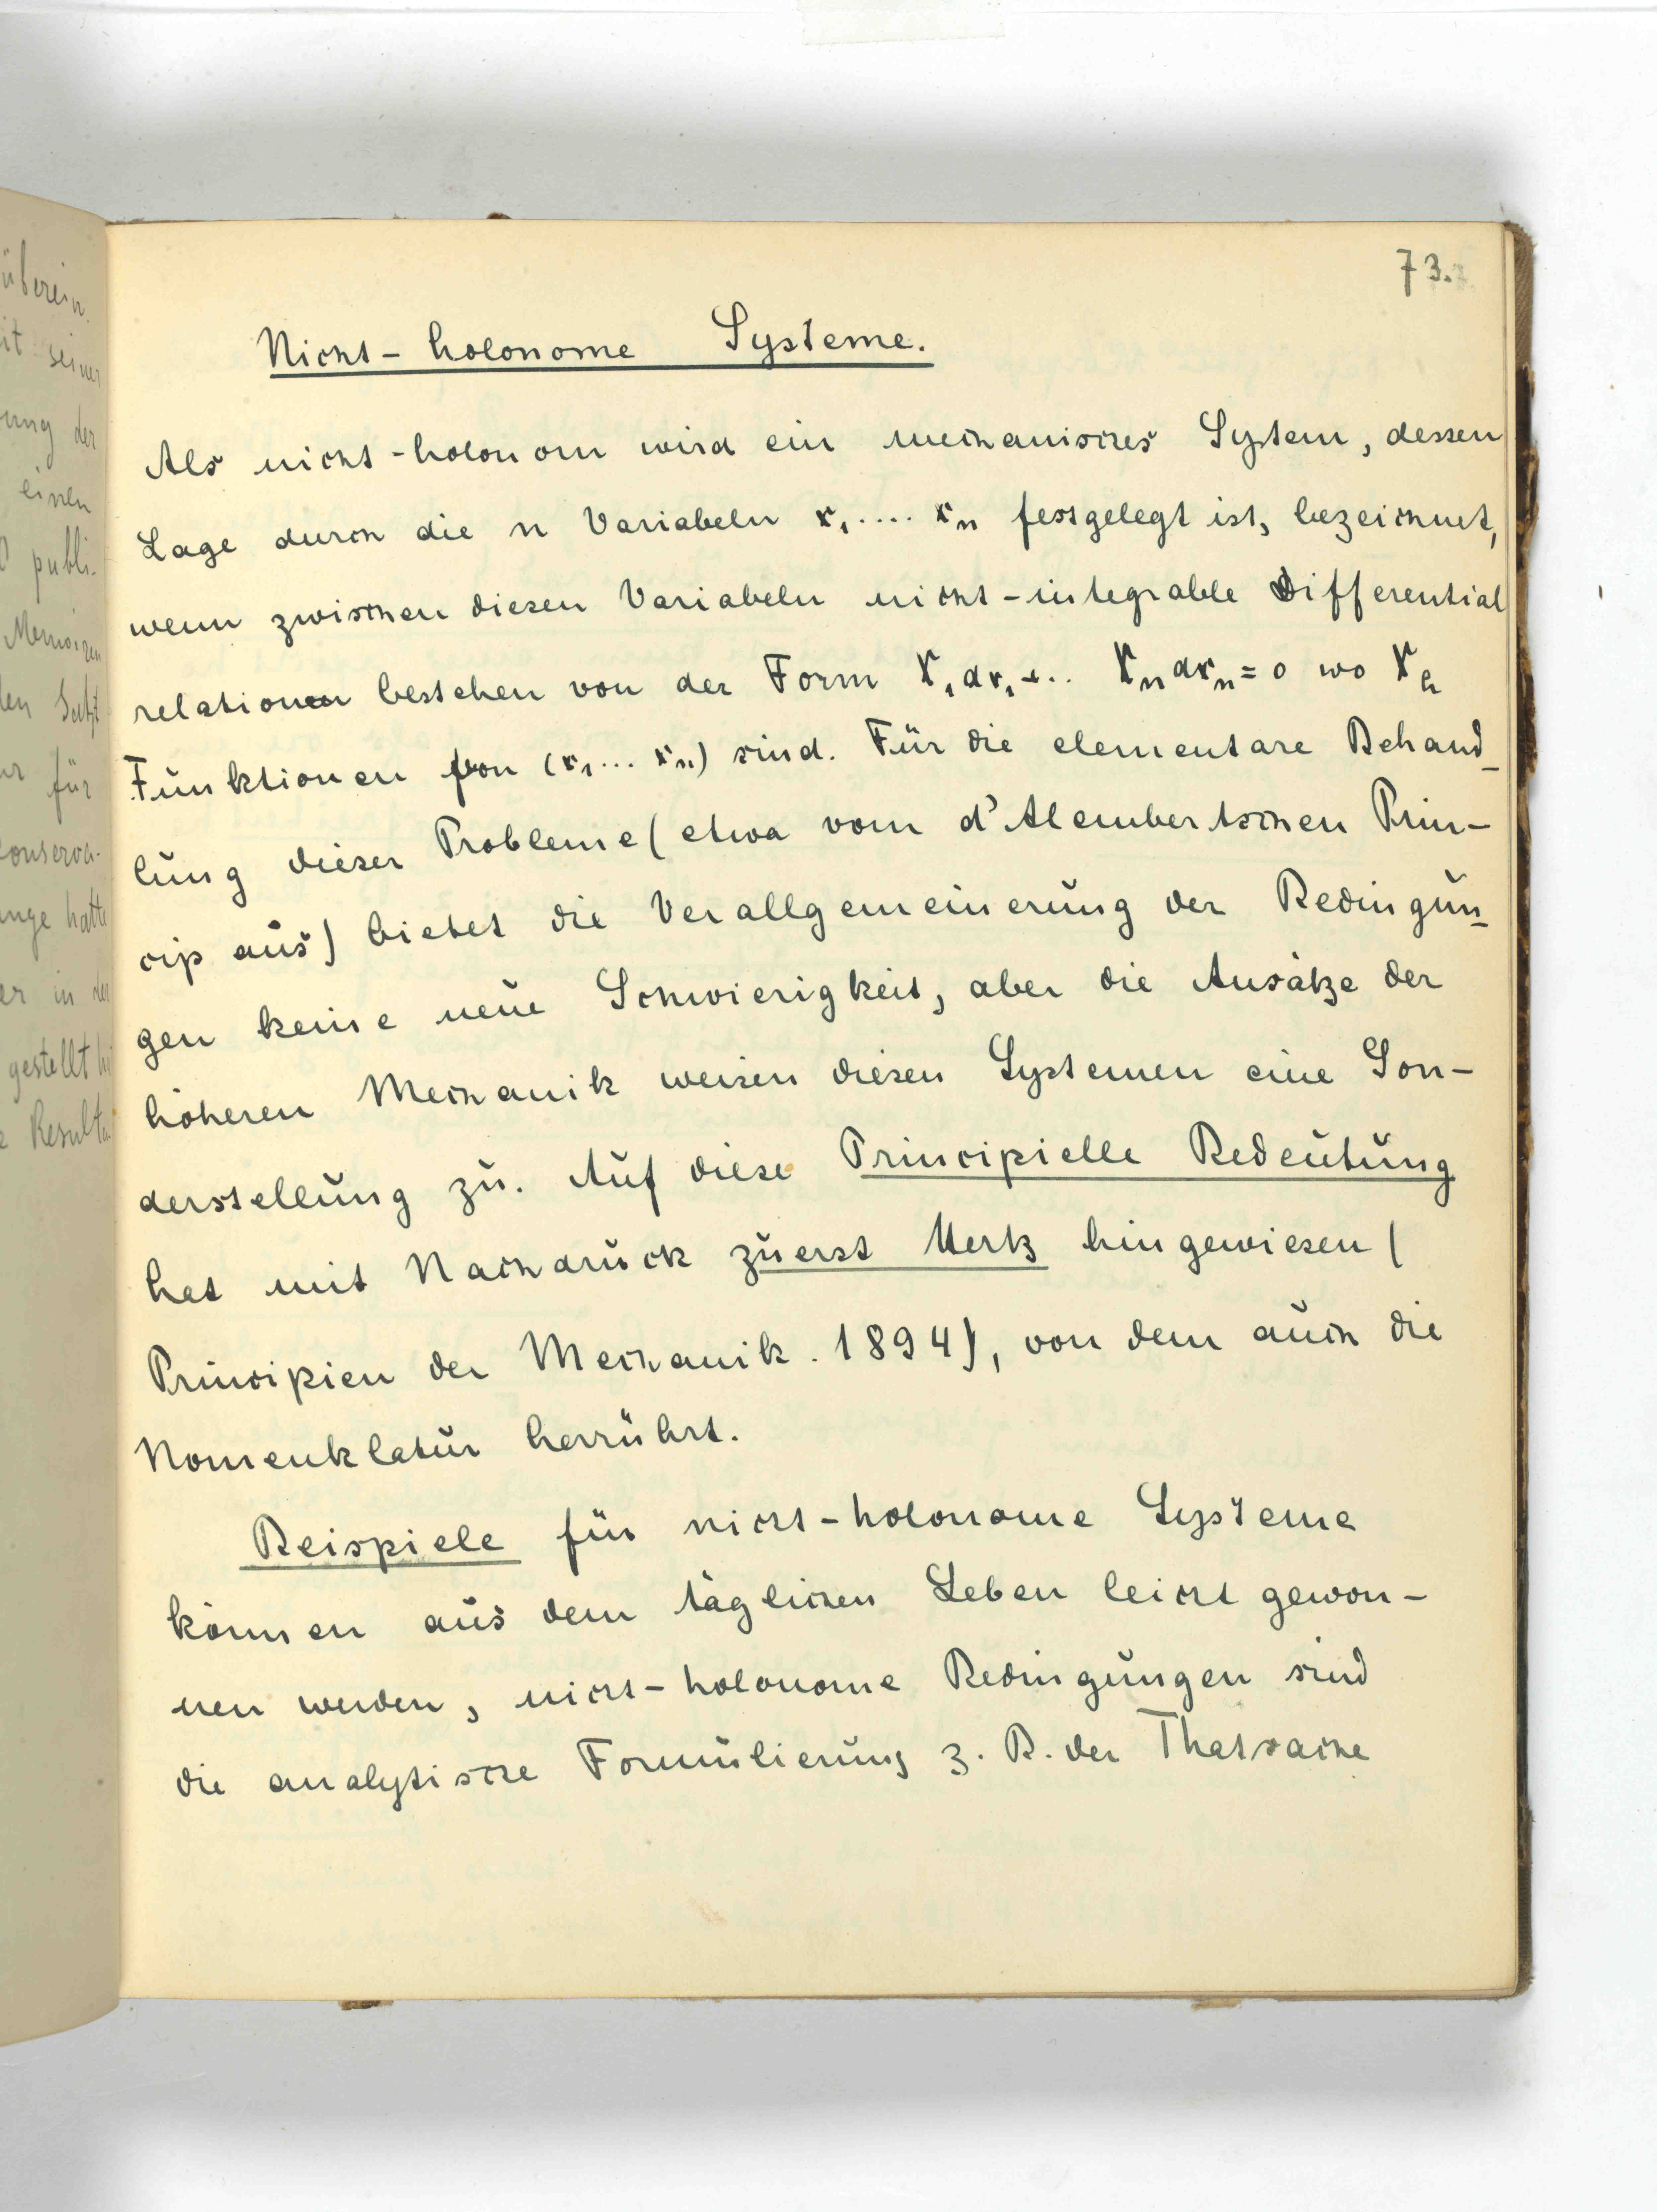 überein
it seiner
ung der
einen
publi-
Memoiren
len Satz
ur für
conserva-
unge hatte
er in der
gestellt
Resulta
73.
Nicht-holonome Systeme.
Als nicht-holonom wird ein mechanisches System, dessen
Lage durch die n Variabeln x₁.... xₙ festgelegt ist, bezeichnet,
wenn zwischen diesen Variabeln nicht-integrable Differential
relationen bestehen von der Form X₁dx₁+.. Xₙdxₙ=0 wo Xₕ
Funktionen von (x₁... xₙ) sind. Für die elementare Behand-
lung dieser Probleme (etwa vom d'Alembertschen Prin-
cip aus) bietet die Verallgemeinerung der Bedingun-
gen keine neue Schwierigkeit, aber die Ansätze der
höheren Mechanik weisen diesen Systemen eine Son-
derstellung zu. Auf diese Principielle Bedeutung
hat mit Nachdruck zuerst Hertz hingewiesen (
Principien der Mechanik. 1894), von dem auch die
Nomenklatur herrührt.
Beispiele für nicht-holonome Systeme
können aus dem täglichen Leben leicht gewon-
nen werden, nicht-holonome Bedingungen sind
die analytische Formulierung z. B. der Thatsache